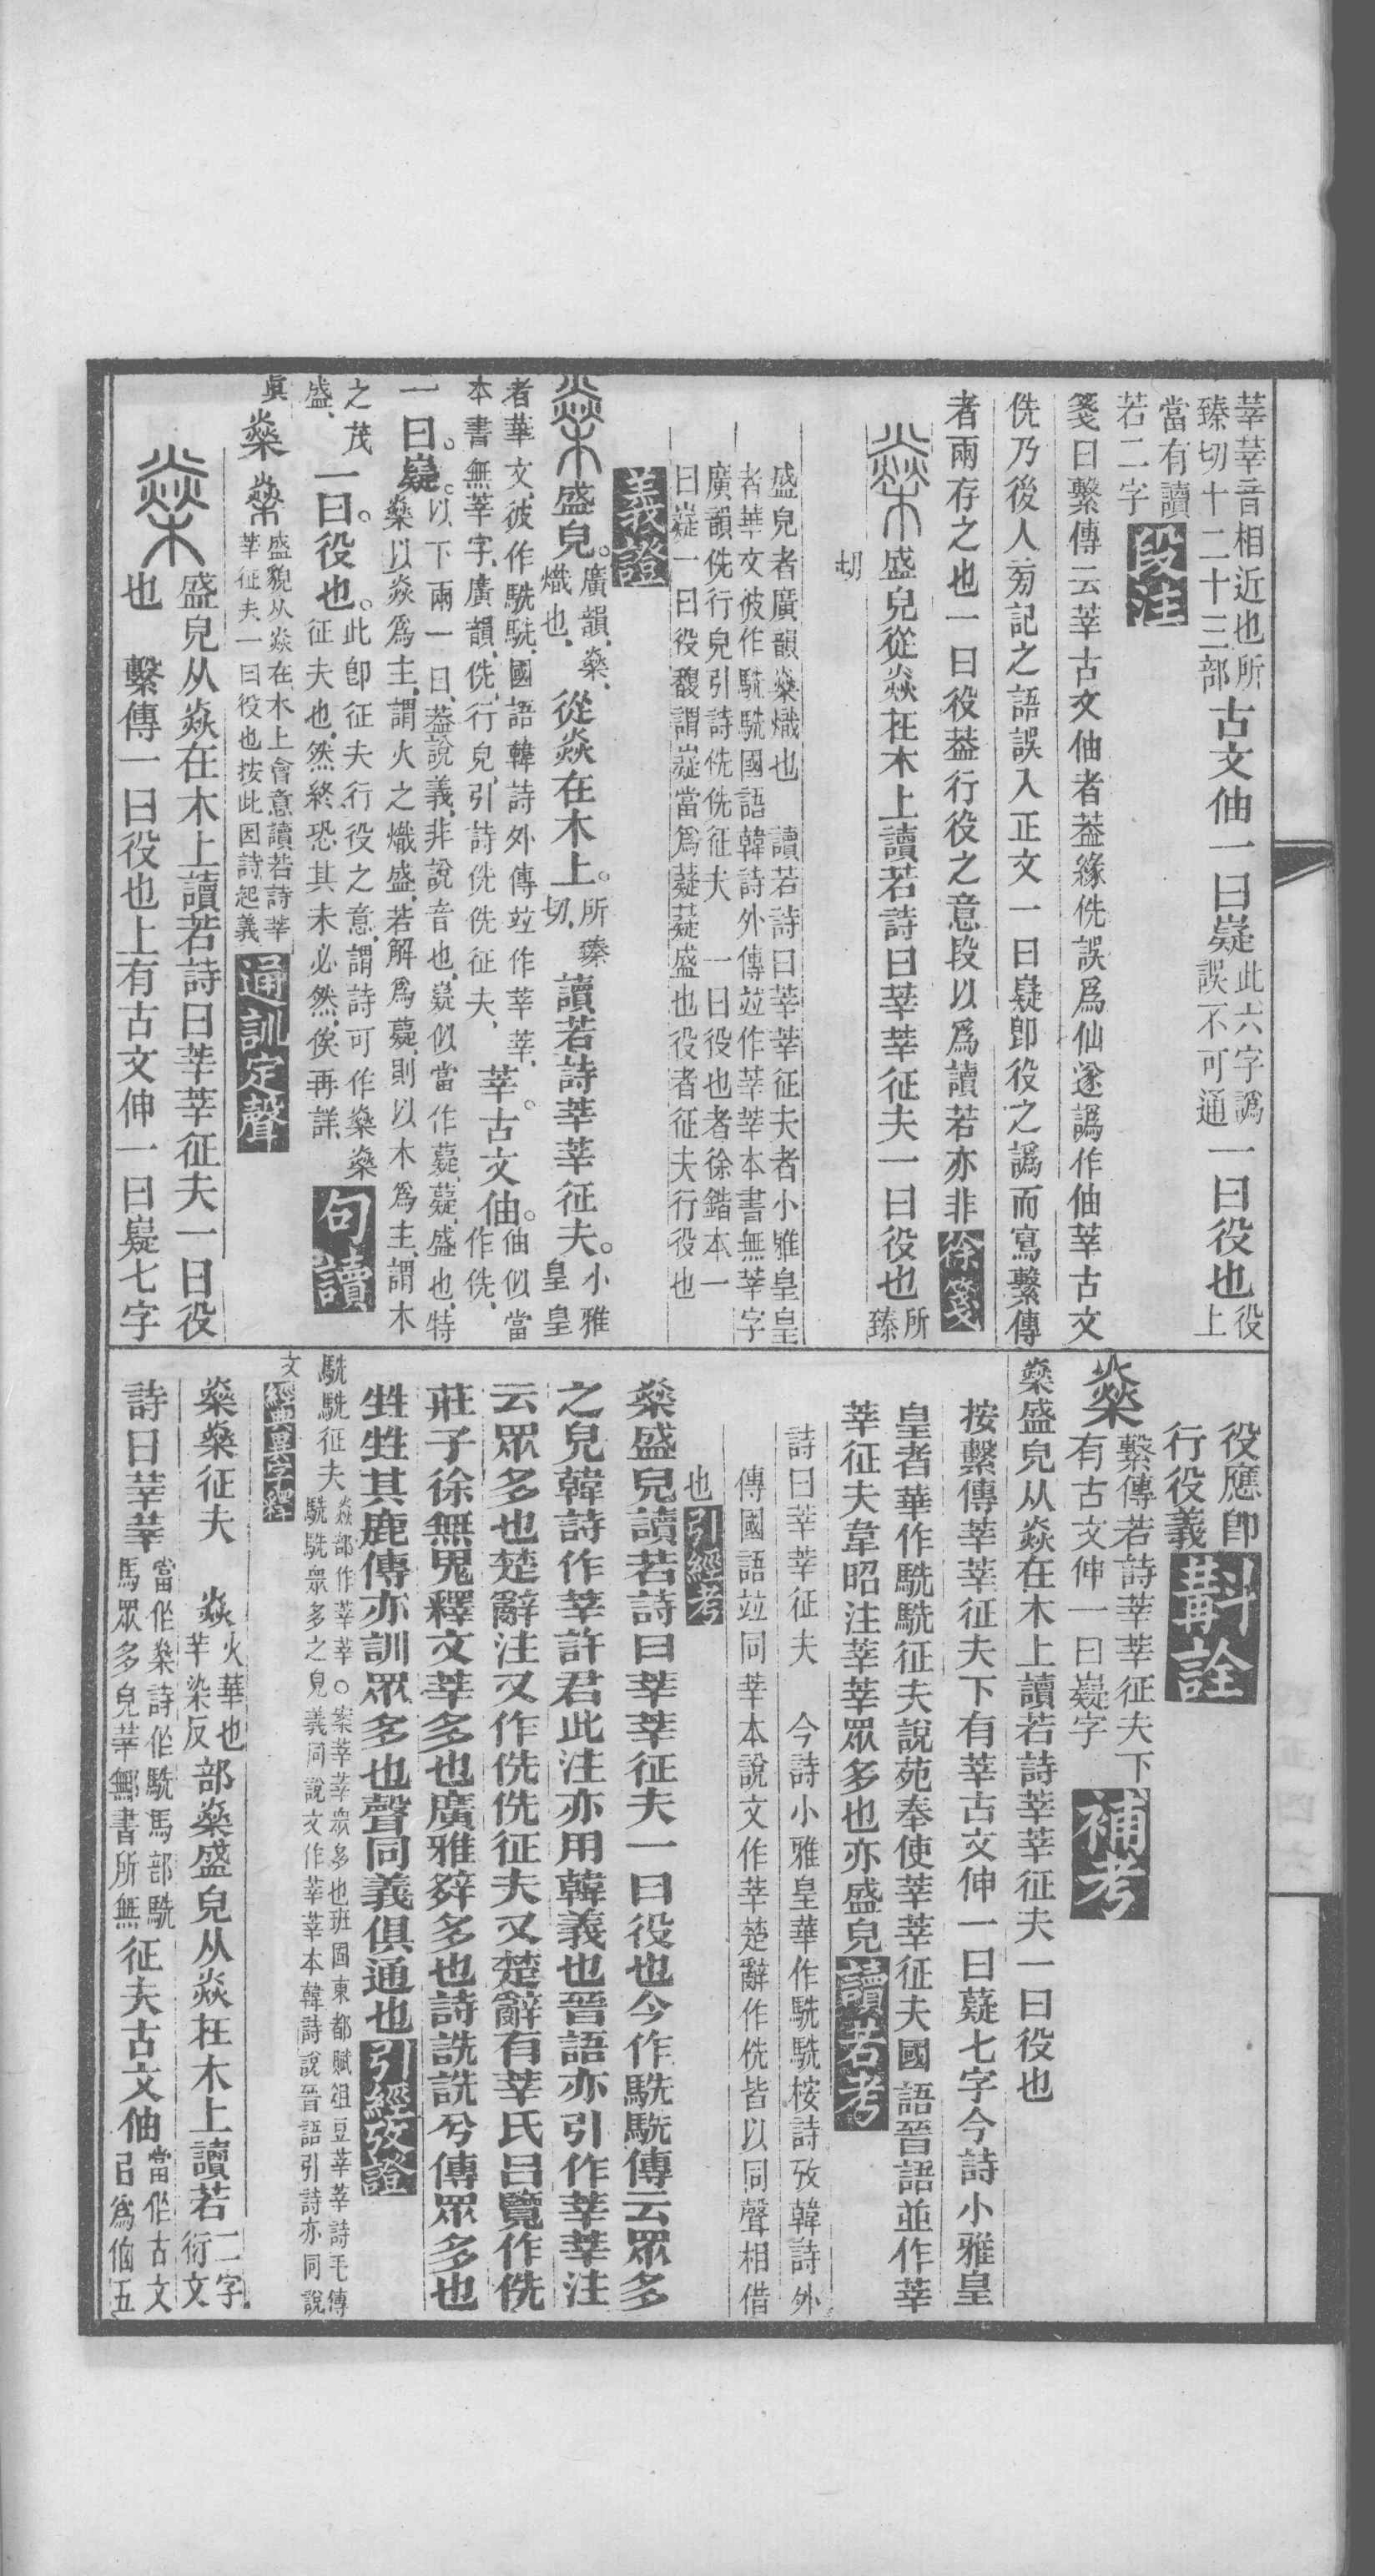 莘莘音相近也所
臻切十二十三部
古文伷一曰嶷
此六字譌
誤不可通
一曰役也
役
上
當有讀
若二字
段注
箋曰繫傳云莘古文伷者葢緣侁誤爲仙遂譌作伷莘古文
侁乃後人㫄記之語誤入正文一曰嶷卽役之譌而寫繫傳
者兩存之也一曰役葢行役之意段以爲讀若亦非
徐箋
燊盛皃從焱在木上讀若詩曰莘莘征夫一曰役也
所
臻
切
盛皃者廣韻燊熾也 讀若詩曰莘莘征夫者小雅皇皇
者華文彼作駪駪國語韓詩外傳竝作莘莘本書無莘字
廣韻侁行皃引詩侁侁征夫 一曰役也者徐鍇本一
曰嶷一曰役馥謂嶷當爲薿薿盛也役者征夫行役也
義證
燊盛皃。
廣韻、燊、
熾也、
從焱在木上。
所臻
切、
讀若詩莘莘征夫。
小雅
皇皇
者華文、彼作駪駪、國語韓詩外傳竝作莘莘、
本書無莘字、廣韻、侁、行皃、引詩侁侁征夫、
莘古文伷。
伷似當
作侁、
一曰。嶷。
以下兩一曰、葢說義、非說音也、嶷似當作薿、薿、盛也、特
燊以焱爲主、謂火之熾盛、若解爲薿、則以木爲主、謂木
之茂
盛、
一曰。役也。
此卽征夫行役之意、謂詩可作燊燊
征夫也、然終恐其未必然、俟再詳、
句讀
眞
燊
燊
盛貌从焱在木上會意讀若詩莘
莘征夫一曰役也按此因詩起義
通訓定聲
燊
盛皃从焱在木上讀若詩曰莘莘征夫一曰役
也 繫傳一曰役也上有古文伸一曰嶷七字
役應卽
行役義
斠詮
燊
繫傳若詩莘莘征夫下
有古文伸一曰嶷字
補考
燊盛皃从焱在木上讀若詩莘莘征夫一曰役也
按繫傳莘莘征夫下有莘古文伸一曰薿七字今詩小雅皇
皇者華作駪駪征夫說苑奉使莘莘征夫國語晉語並作莘
莘征夫韋昭注莘莘眾多也亦盛皃
讀若考
詩曰莘莘征夫 今詩小雅皇華作駪駪桉詩攷韓詩外
傳國語竝同莘本說文作莘楚辭作侁皆以同聲相借
也
引經考
燊盛皃讀若詩曰莘莘征夫一曰役也今作駪駪傳云眾多
之皃韓詩作莘許君此注亦用韓義也晉語亦引作莘莘注
云眾多也楚辭注又作侁侁征夫又楚辭有莘氏呂覽作侁
莊子徐無鬼釋文莘多也廣雅㚞多也詩詵詵兮傳眾多也
甡甡其鹿傳亦訓眾多也聲同義俱通也
引經攷證
駪駪征夫
焱部作莘莘○案莘莘眾多也班固東都賦俎豆莘莘詩毛傳
駪駪眾多之皃義同說文作莘莘本韓詩說晉語引詩亦同說
文
經典異字釋
燊燊征夫 焱
火華也
莘染反
部燊盛皃从焱在木上讀若
二字
衍文
詩曰莘莘
當作燊詩作駪馬部駪
馬眾多皃莘鄦書所無
征夫古文伷
當作古文
㠯爲伷五